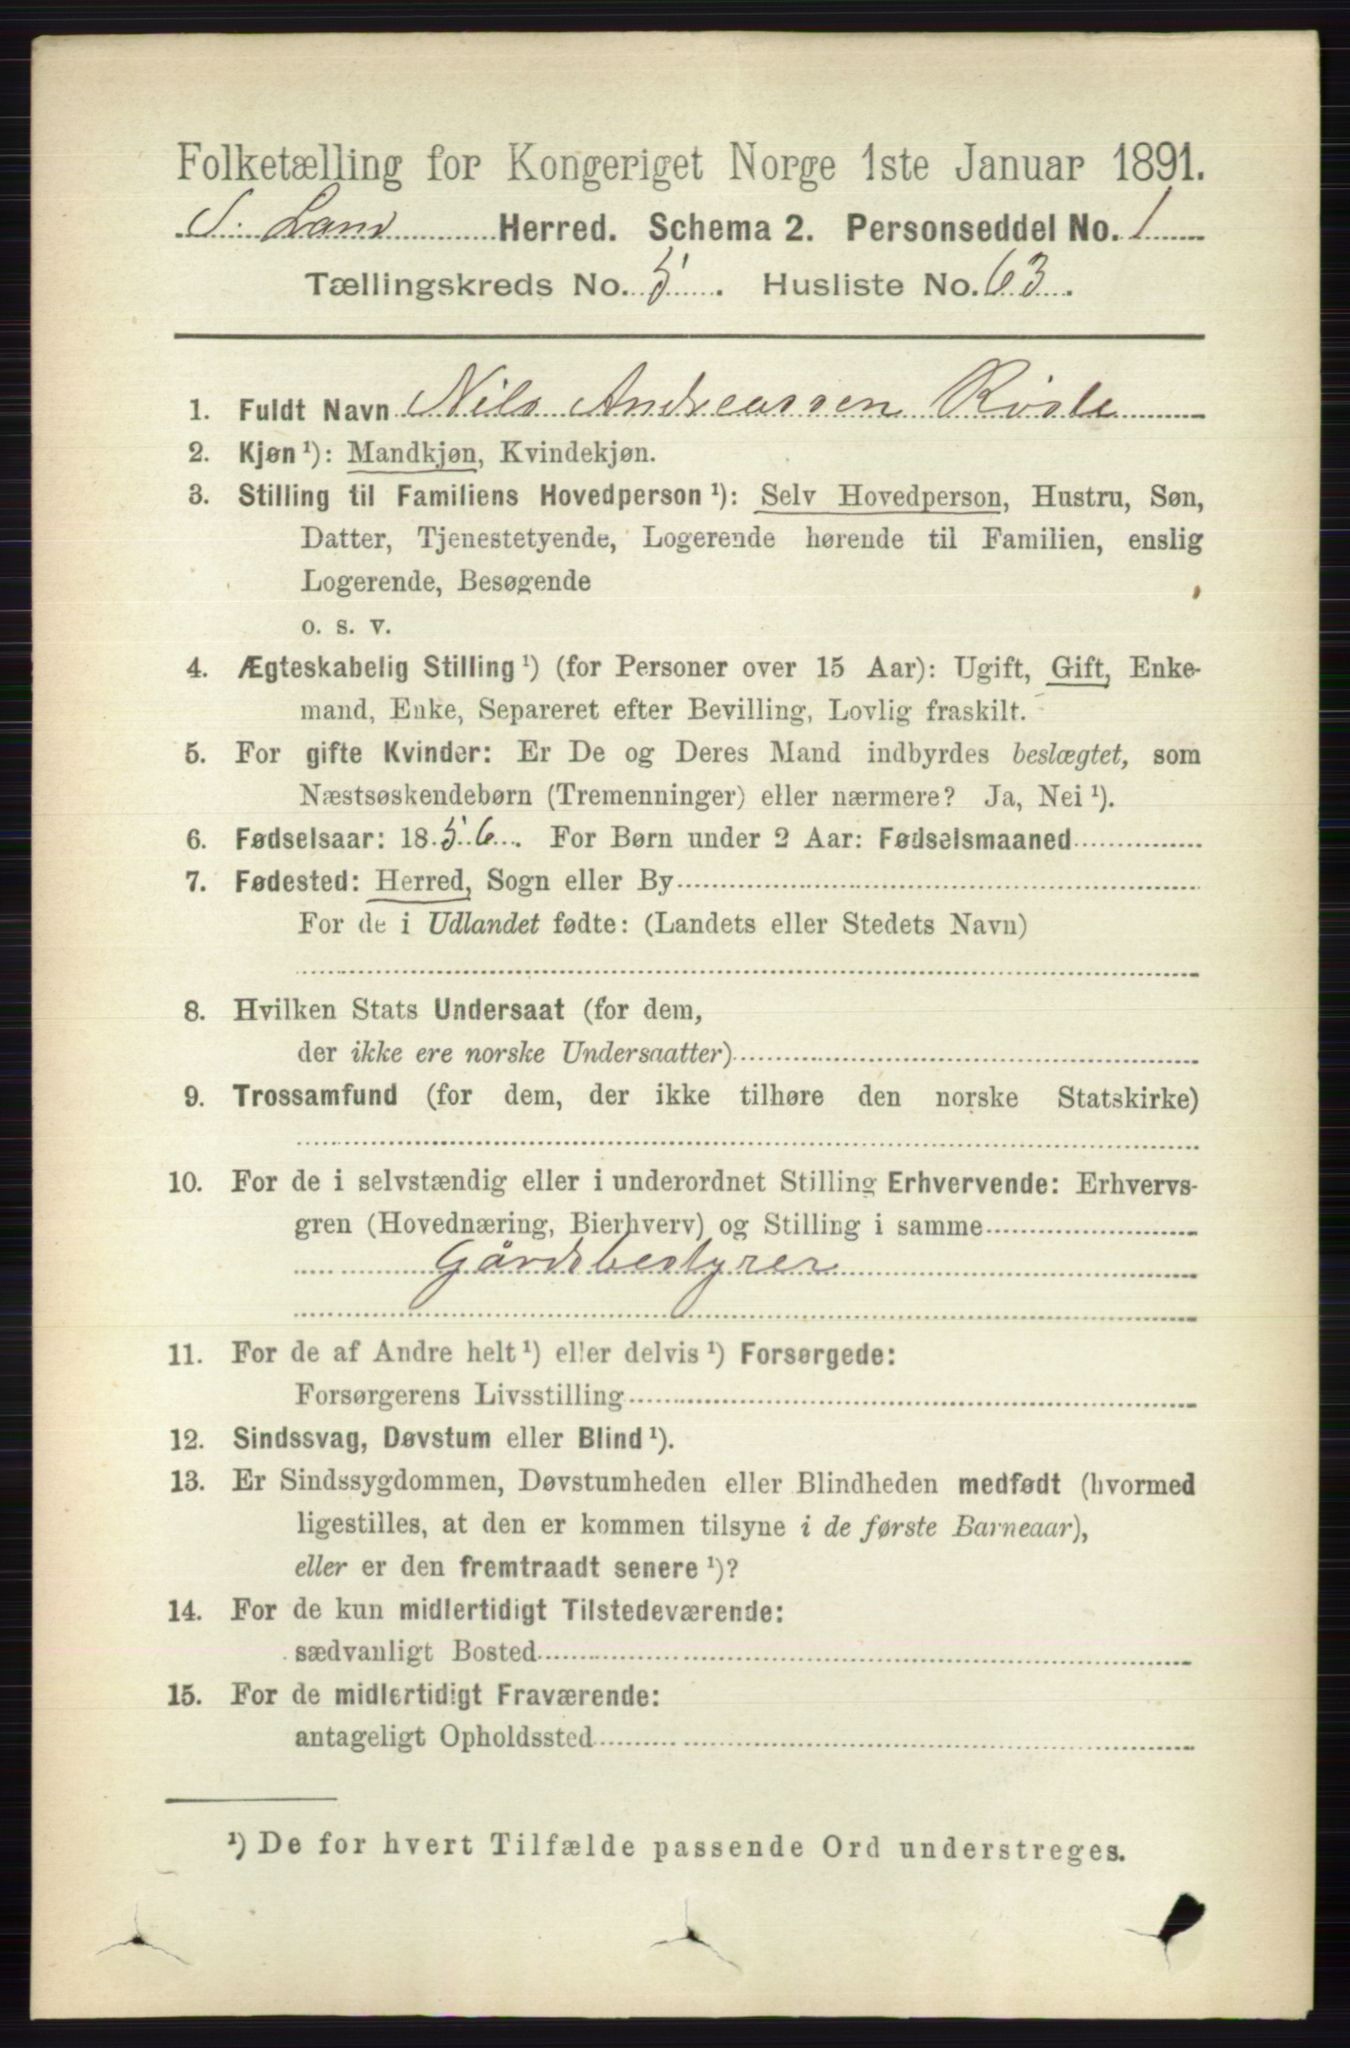 Folketælling for Kongeriget Norge 1ste Januar 1891.
S. Land Herred. Schema 2. Personseddel No. 1
Tællingskreds No. 5. Husliste No. 63.
1. Fuldt Navn Nils Andreassen
2. Kjøn¹): Mandkjøn, Kvindekjøn.
3. Stilling til Familiens Hovedperson¹): Selv Hovedperson, Hustru, Søn,
Datter, Tjenestetyende, Logerende hørende til Familien, enslig
Logerende, Besøgende
o. s. v.
4. Ægteskabelig Stilling¹) (for Personer over 15 Aar): Ugift, Gift, Enke-
mand, Enke, Separeret efter Bevilling, Lovlig fraskilt.
5. For gifte Kvinder: Er De og Deres Mand indbyrdes beslægtet, som
Næstsøskendebørn (Tremenninger) eller nærmere? Ja, Nei¹).
6. Fødselsaar: 1856. For Børn under 2 Aar: Fødselsmaaned
7. Fødested: Herred, Sogn eller By
For de i Udlandet fødte: (Landets eller Stedets Navn)
8. Hvilken Stats Undersaat (for dem,
der ikke ere norske Undersaatter)
9. Trossamfund (for dem, der ikke tilhøre den norske Statskirke)
10. For de i selvstændig eller i underordnet Stilling Erhvervende: Erhvervs-
gren (Hovednæring, Bierhverv) og Stilling i samme
Gårdsbestyrer
11. For de af Andre helt¹) eller delvis¹) Forsørgede:
Forsørgerens Livsstilling
12. Sindssvag, Døvstum eller Blind¹).
13. Er Sindssygdommen, Døvstumheden eller Blindheden medfødt (hvormed
ligestilles, at den er kommen tilsyne i de første Barneaar),
eller er den fremtraadt senere¹)?
14. For de kun midlertidigt Tilstedeværende:
sædvanligt Bosted
15. For de midlertidigt Fraværende:
antageligt Opholdssted
¹) De for hvert Tilfælde passende Ord understreges.